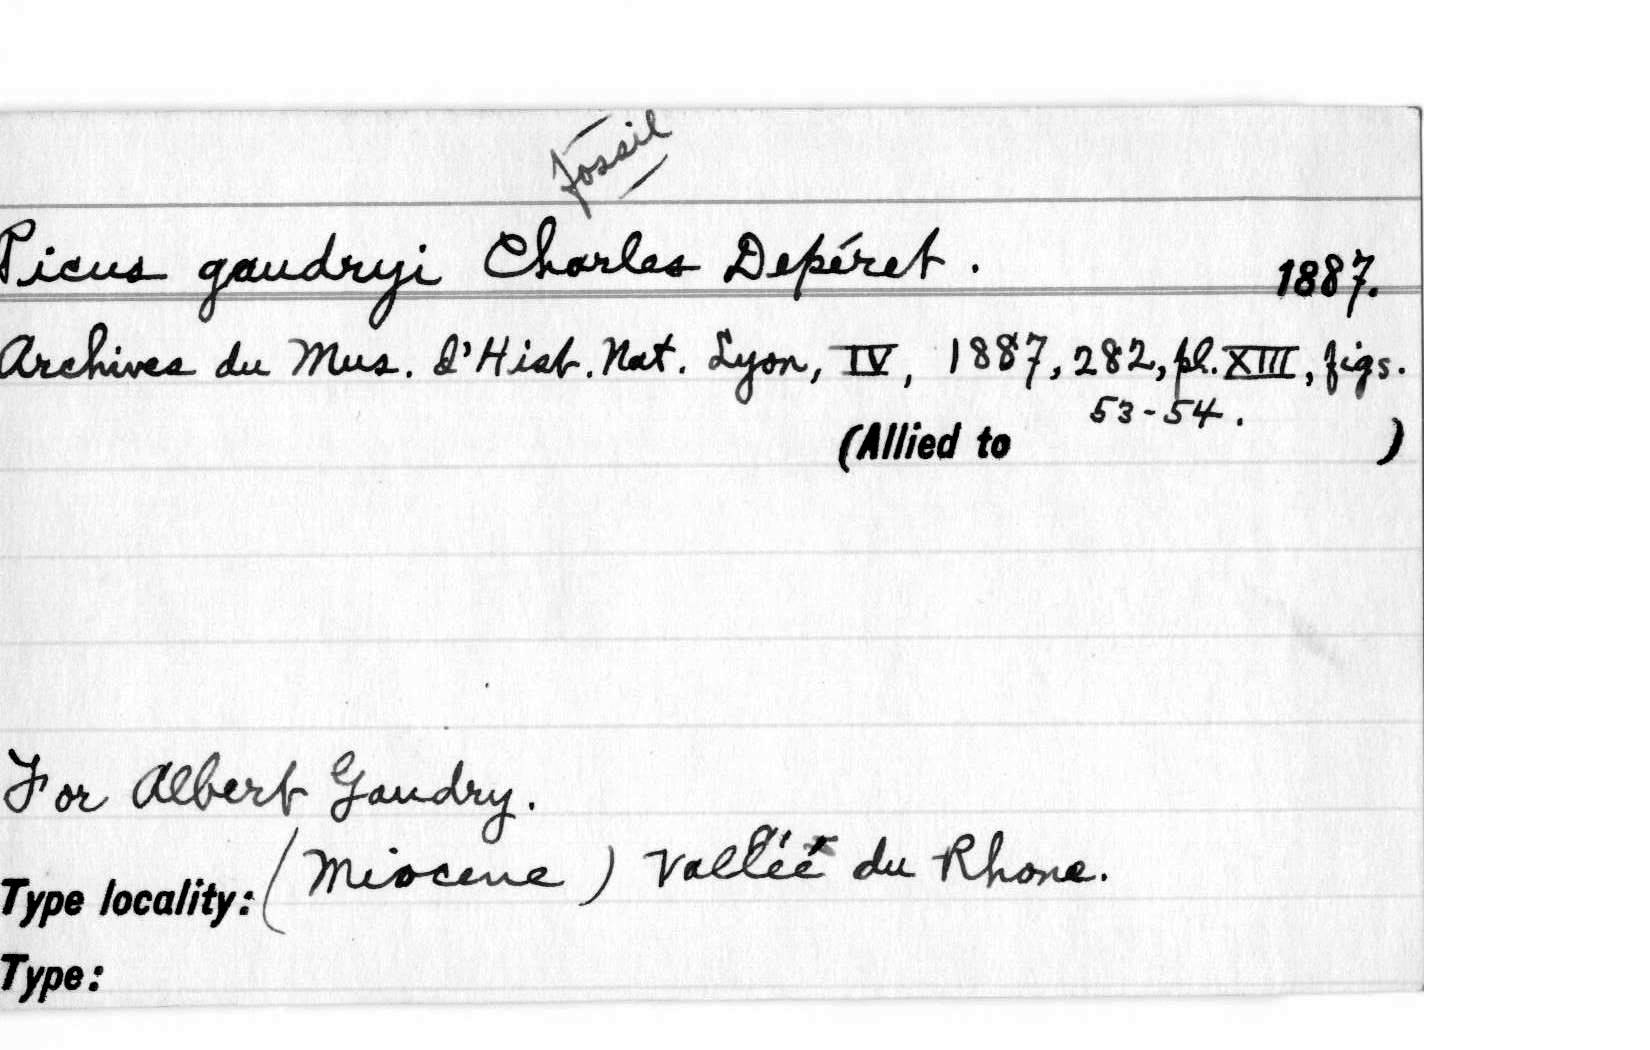 Fossil
Picus gaudryi Charles Depéret. 1887.
Archives du Mus. d'Hist. Nat. Lyon, IV, 1887, 282, pl. XIII, figs.
53-54.
(Allied to )
For Albert Gaudry.
Type locality: (Miocene) Valléé du Rhone.
Type: